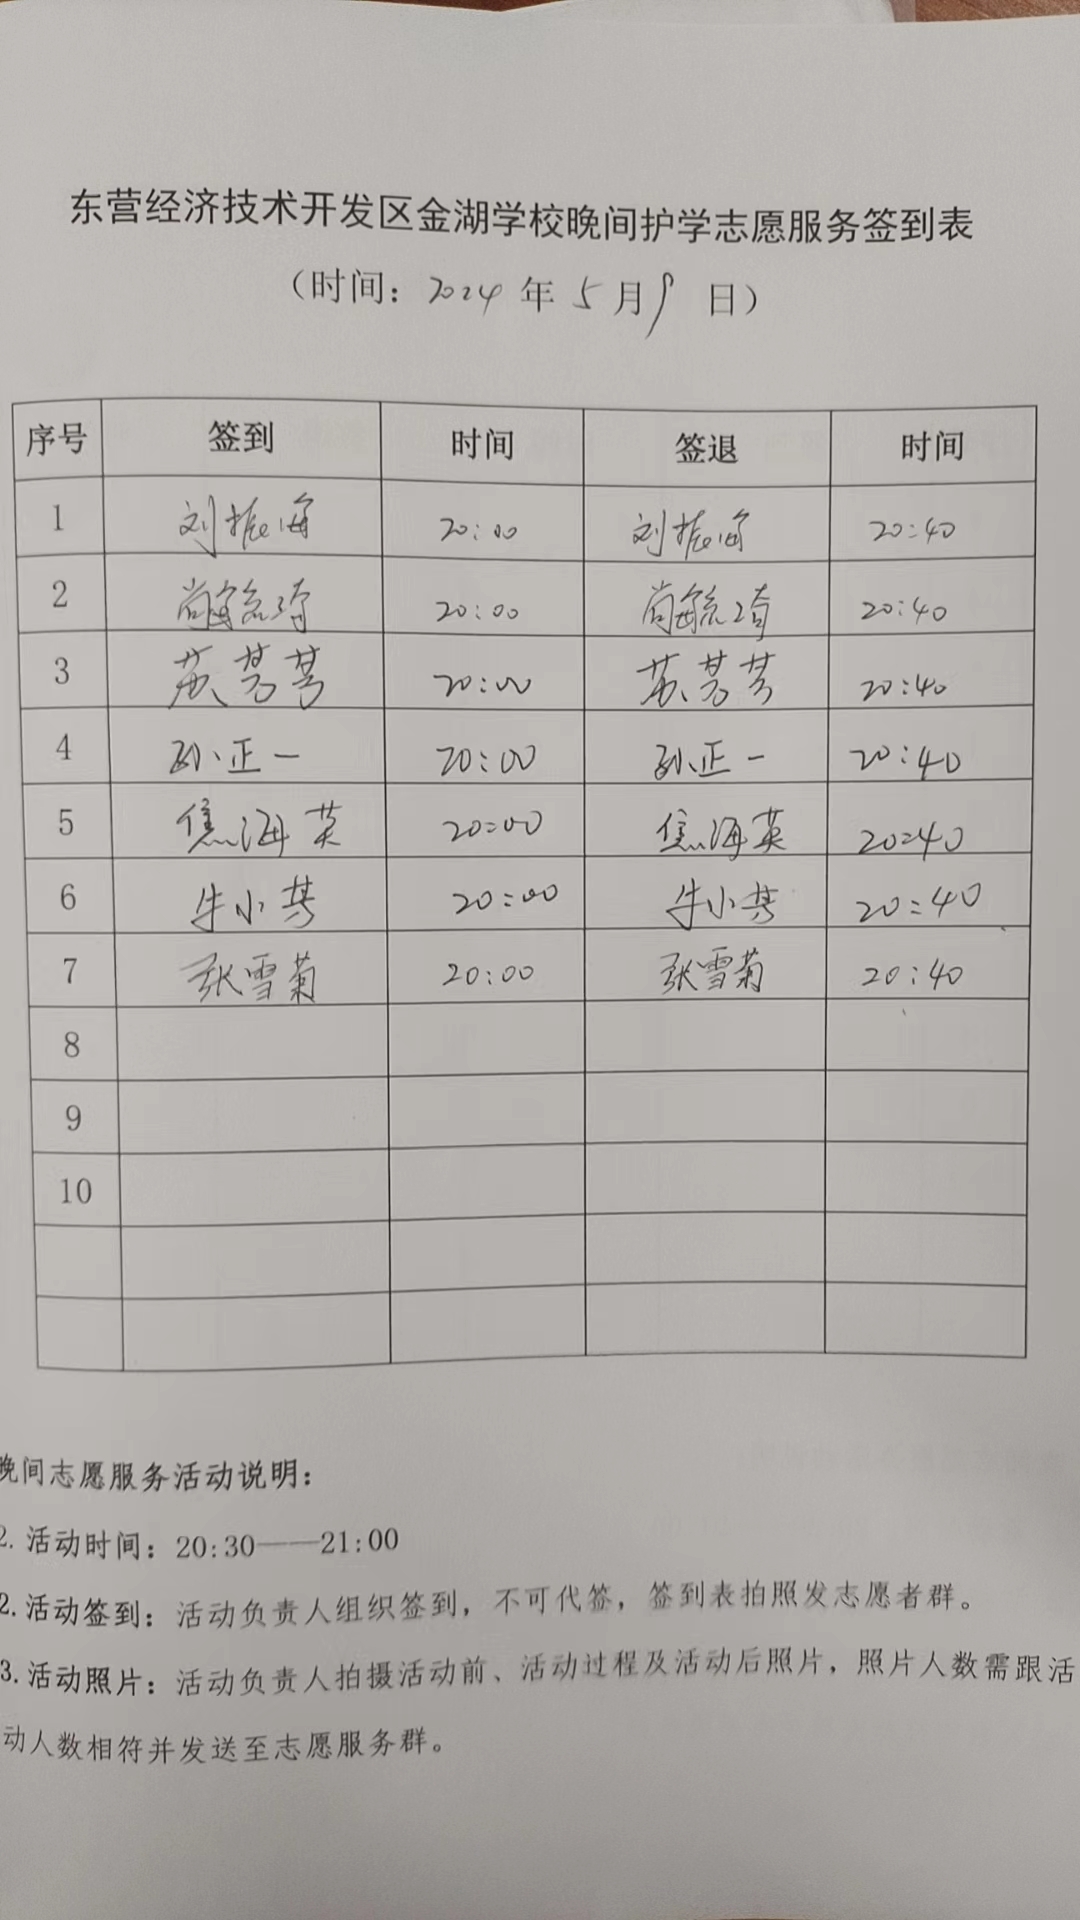 东营经济技术开发区金湖学校晚间护学志愿服务签到表
（时间：2024 年 5 月 9 日）
序号 签到 时间 签退 时间
1 刘振海 20:00 刘振海 20:40
2 20:00 20:40
3 苏芳芳 20:00 苏芳芳 20:40
4 孙正一 20:00 孙正一 20:40
5 焦海英 20:00 焦海英 20:40
6 牛小 20:00 牛小 20:40
7 张雪菊 20:00 张雪菊 20:40
8
9
10
晚间志愿服务活动说明：
2. 活动时间：20:30——21:00
2. 活动签到：活动负责人组织签到，不可代签，签到表拍照发志愿者群。
3. 活动照片：活动负责人拍摄活动前、活动过程及活动后照片，照片人数需跟活
动人数相符并发送至志愿服务群。